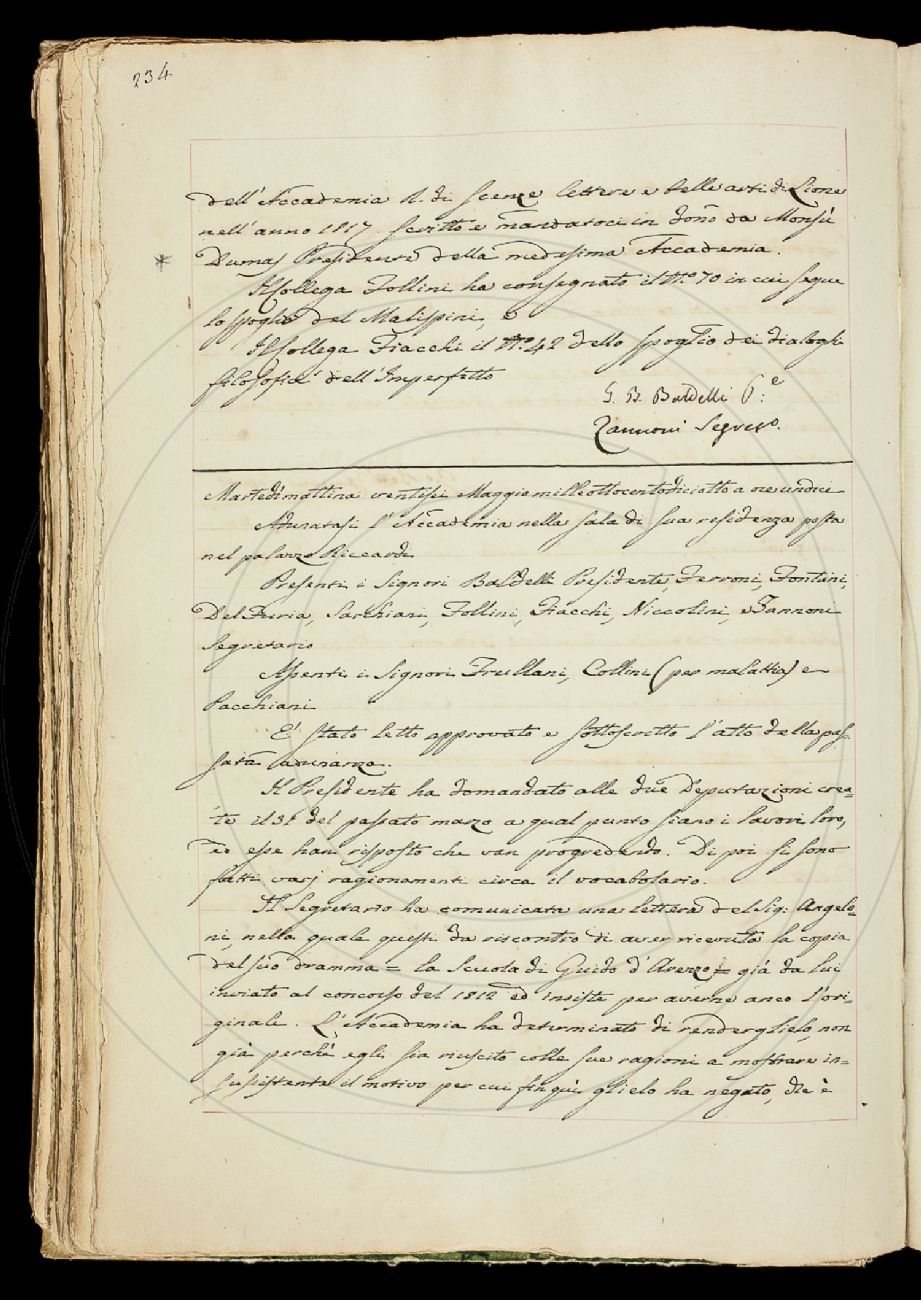 234
dell'Accademia R. di Scenze lettere e belle arti di Lione
nell'anno 1817. scritto e mandatoci in dono da Monsù
Dumas Presidente della medesima Accademia.
*
Il Collega Follini ha consegnato il N.° 70 in cui segue
lo spoglio del Malispini, e
Il Collega Fiacchi il N.° 42 dello spoglio dei dialoghi
filosofici dell'Imperfetto
G. B. Baldelli P.e
Zannoni Segret.o
Martedì mattina ventisei Maggio mille ottocentodiciotto a ore undici
Adunatasi l'Accademia nella sala di sua residenza posta
nel palazzo Riccardi
Presenti i Signori Baldelli Presidente, Ferroni, Fontani,
Del Furia, Sarchiani, Follini, Fiacchi, Niccolini, e Zannoni
Segretario
Assenti i Signori Frullani, Collini (per malattia) e
Pacchiani
E' stato letto approvato e sottoscritto l'atto della pas-
sata adunanza.
Il Presidente ha domandato alle due Deputazioni crea=
te il 31 del passato marzo a qual punto siano i lavori loro,
ed esse han risposto che van progredendo. Di poi si sono
fatti varj ragionamenti circa il vocabolario.
Il Segretario ha comunicata una lettera del Sig: Angelo=
ni, nella quale questi dà riscontro di aver ricevuta la copia
del suo dramma = la Scuola di Guido d'Arezzo = già da lui
inviato al concorso del 1812 ed insiste per averne anco l'ori-
ginale. L'Accademia ha determinato di renderglielo, non
già perchè egli sia riuscito colle sue ragioni a mostrare in=
sussistente il motivo per cui fin quì glielo ha negato, che è